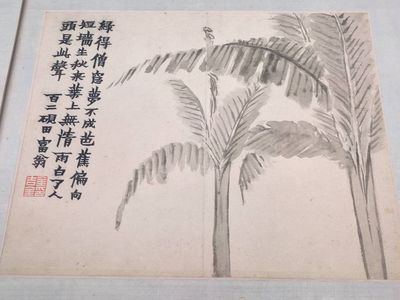 綠得僧窗夢不成芭蕉偏向
短墻生秋來葉上無情雨白了人
頭是此聲 百二硯田富翁